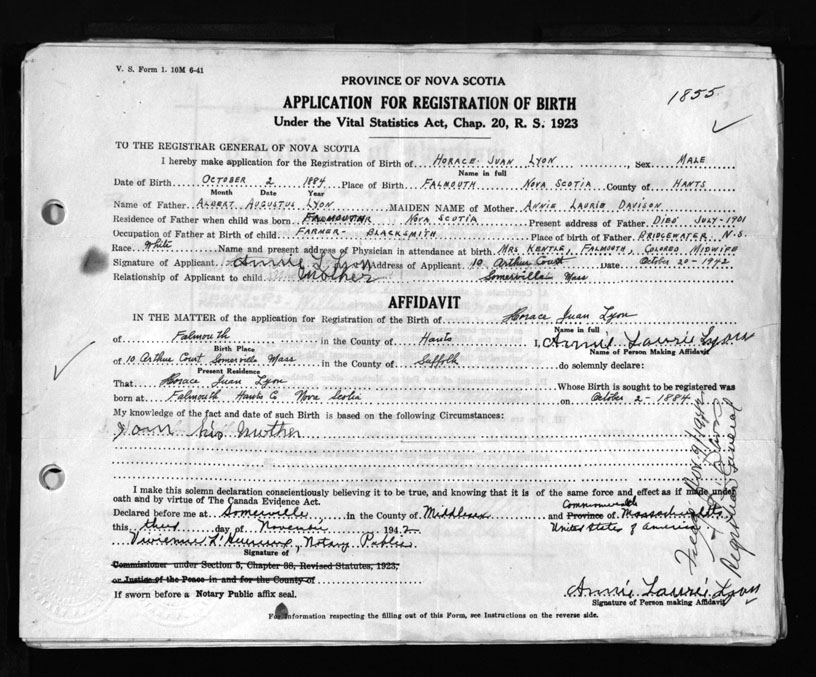 V. S. Form 1. 10M 6-41
1855
PROVINCE OF NOVA SCOTIA
APPLICATION FOR REGISTRATION OF BIRTH
Under the Vital Statistics Act, Chap. 20, R. S. 1923
TO THE REGISTRAR GENERAL OF NOVA SCOTIA
I hereby make application for the Registration of Birth of HORACE JUAN LYON, Sex MALE
Name in full
Date of Birth OCTOBER 2 1884 Place of Birth FALMOUTH NOVA SCOTIA County of HANTS
Month Date Year
Name of Father ALBERT AUGUSTUS LYON MAIDEN NAME of Mother ANNIE LAURIE DAVISON
Residence of Father when child was born FALMOUTH NOVA SCOTIA Present address of Father DIED JULY-1901
Occupation of Father at Birth of child FARMER- BLACKSMITH Place of birth of Father BRIDGEWATER N.S.
Race White Name and present address of Physician in attendance at birth MRS KENTLE, FALMOUTH, COLORED MIDWIFE
Signature of Applicant Annie L. Lyon Address of Applicant 10 Arthur Court Date October 20-1942
Relationship of Applicant to child Mother Somerville Mass
AFFIDAVIT
IN THE MATTER of the application for Registration of the Birth of Horace Juan Lyon
Name in full
of Falmouth in the County of Hants I, Annie Laurie Lyon
Birth Place Name of Person Making Affidavit
of 10 Arthur Court Somerville Mass in the County of Suffolk do solemnly declare:
Present Residence
That Horace Juan Lyon Whose Birth is sought to be registered was
born at Falmouth Hants Co Nova Scotia on October 2-1884.
My knowledge of the fact and date of such Birth is based on the following Circumstances:
I am his Mother
I make this solemn declaration conscientiously believing it to be true, and knowing that it is of the same force and effect as if made under
oath and by virtue of The Canada Evidence Act.
Commonwealth
Declared before me at Somerville in the County of Middlesex and Province of Massachusetts
this third day of November 1942 United States of America
Vivienne Notary Public
Signature of
Commissioner under Section 5, Chapter 38, Revised Statutes, 1923,
or Justice of the Peace in and for the County of
If sworn before a Notary Public affix seal.
Annie Laurie Lyon
Signature of Person making Affidavit
For information respecting the filling out of this Form, see Instructions on the reverse side.
Filed Nov. 9/1942
Registrar General